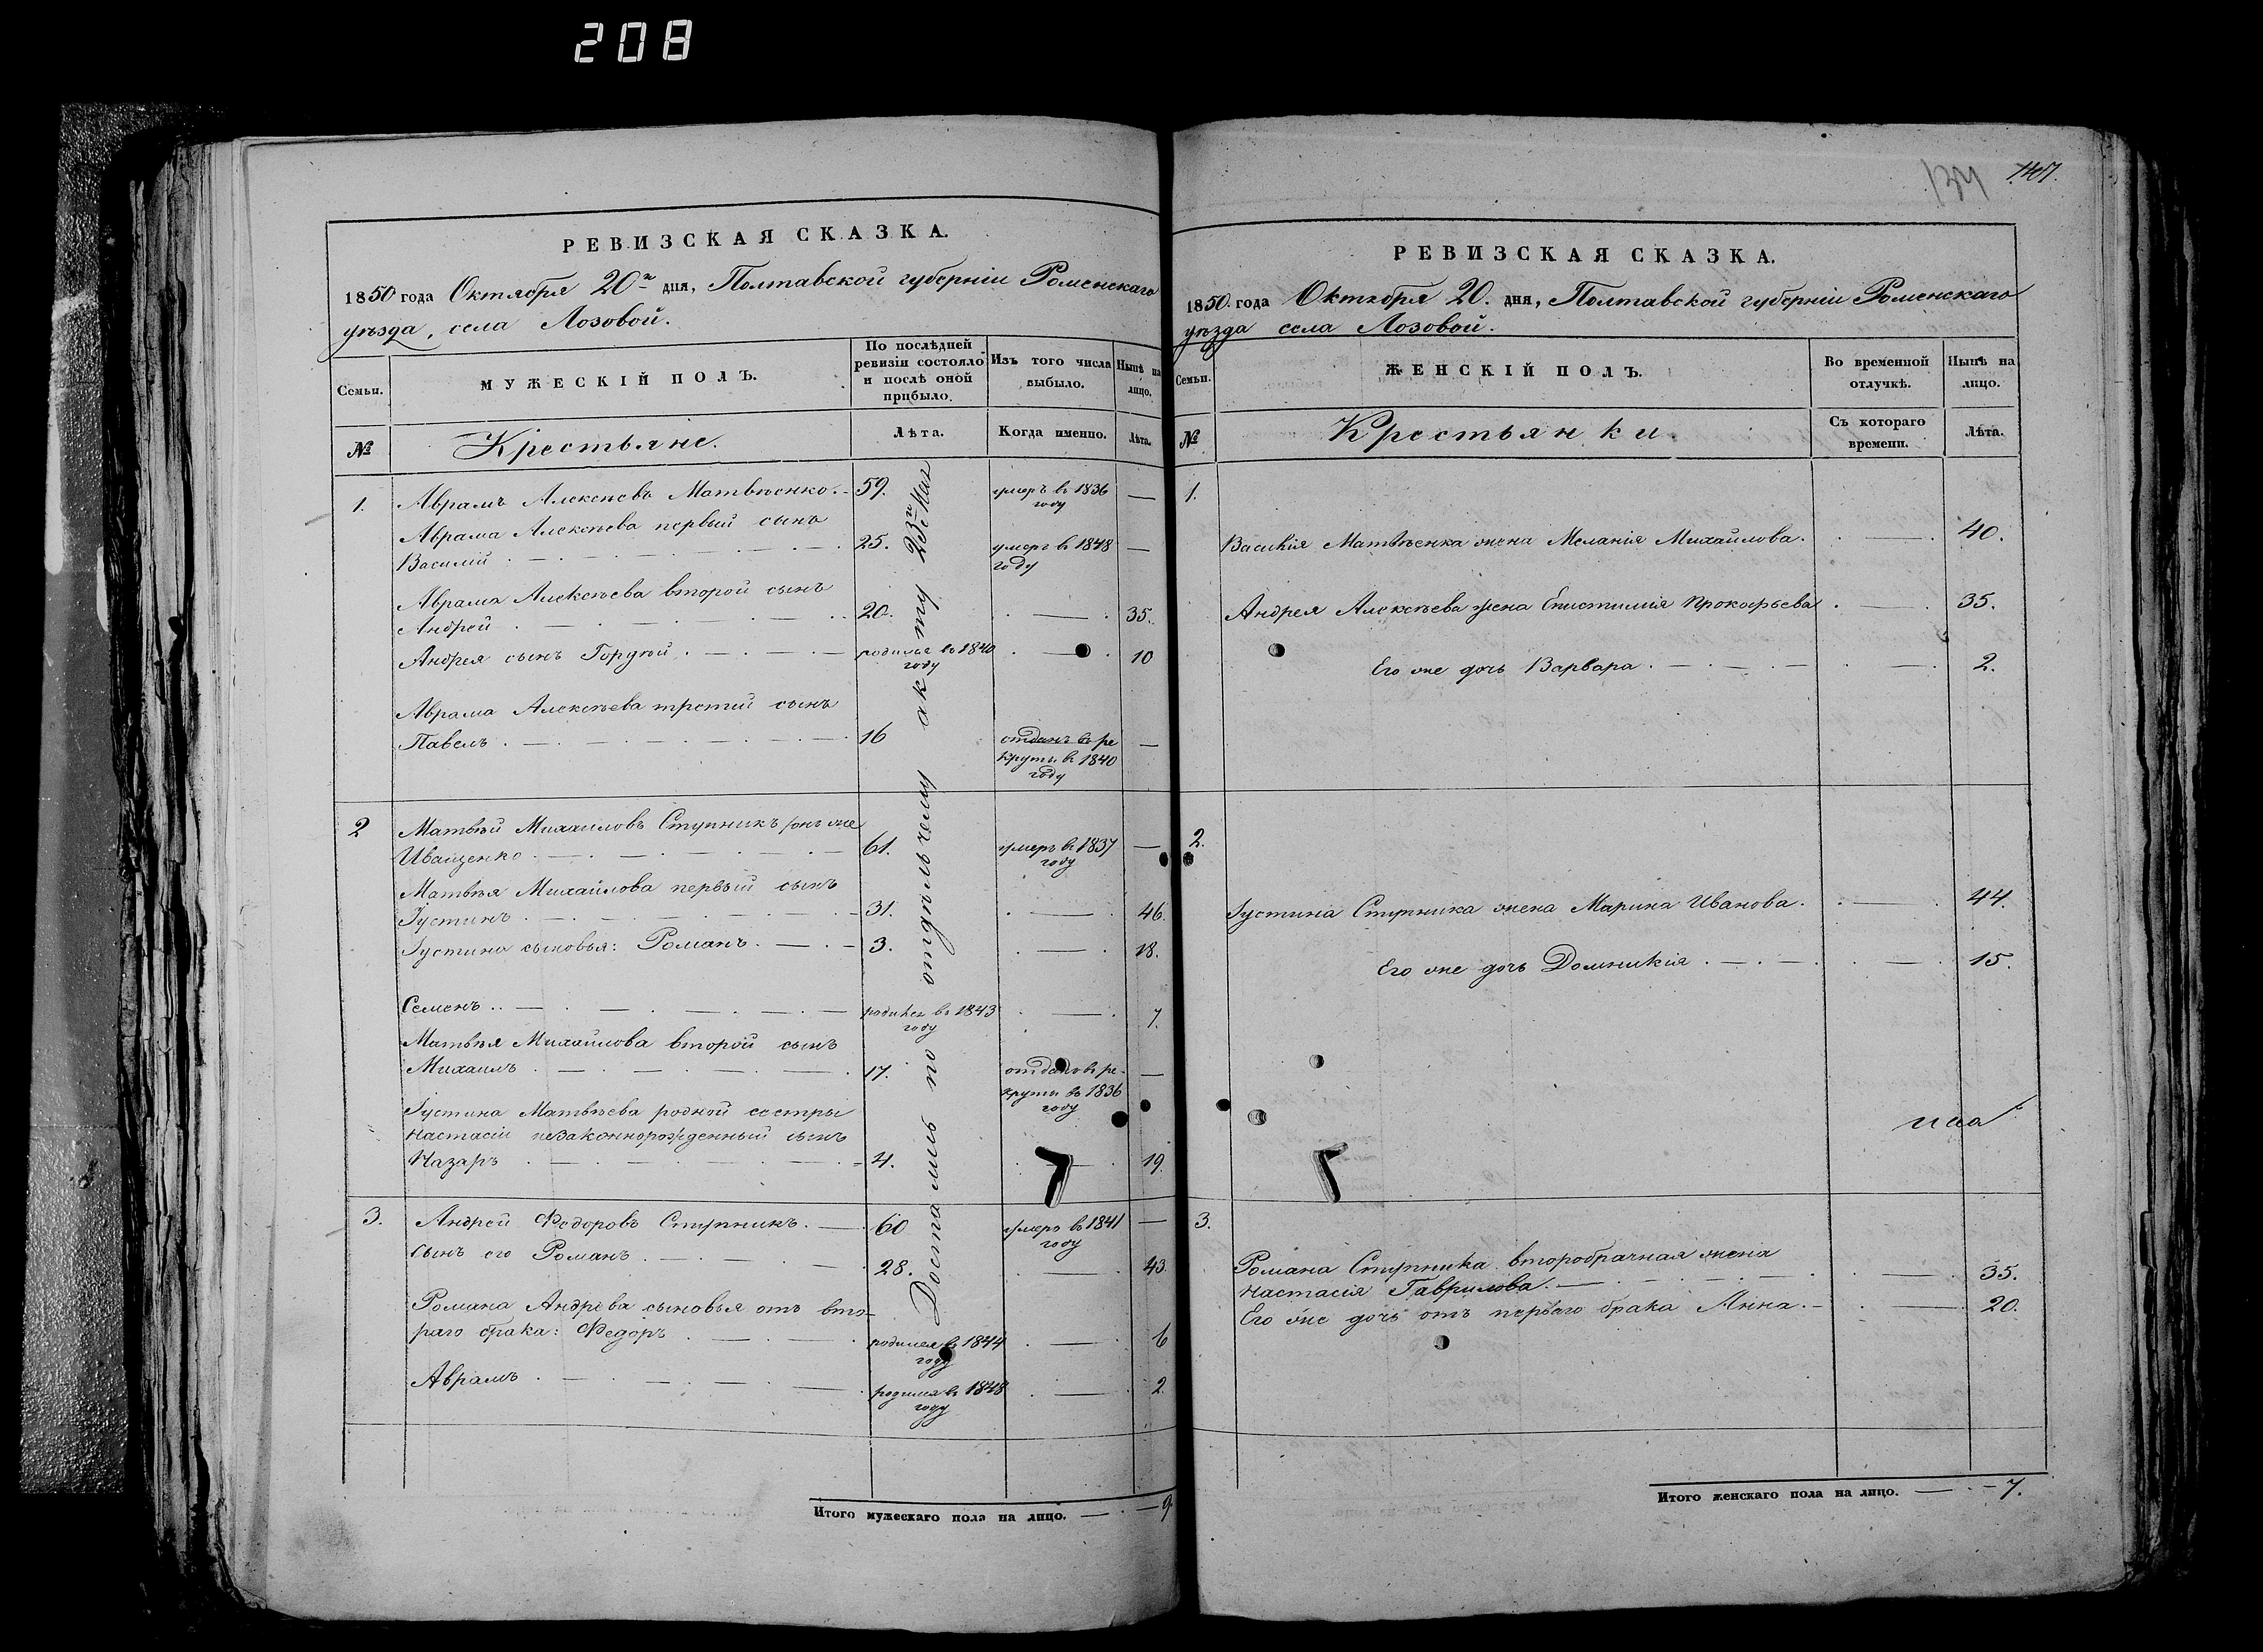 208
РЕВИЗСКАЯ СКАЗКА.
1850 года Октября 20го дня, Полтавской губерніи Роменскаго
уѣзда, села Лозовой.
Семьи.
МУЖЕСКІЙ ПОЛЪ.
По послѣдней
ревизіи состояло
и послѣ оной
прибыло.
Изъ того числа
выбыло.
Нынѣ на
лицо.
№
Крестьяне.
Лѣта.
Когда именно.
Лѣта.
1. Аврамъ Алексѣевъ Матвѣенко. 59. умеръ въ 1836 —
году
Аврама Алексѣева первый сынъ
Василій 25. умеръ въ 1848 —
году
Аврама Алексѣева второй сынъ
Андрей 20. — 35.
Андрея сынъ Гордѣй родился въ 1840 — 10
году
Аврама Алексѣева третій сынъ
Павелъ 16 отданъ въ ре —
круты въ 1840
году
2 Матвѣй Михаиловъ Ступникъ онъ же
Иващенко 61. умеръ въ 1837 —
году
Матвѣя Михаилова первый сынъ
Іустинъ 31. — 46.
Іустина сыновья: Романъ 3. — 18.
Семенъ родился въ 1843 — 7.
году
Матвѣя Михаилова второй сынъ
Михаилъ 17. отданъ въ ре- —
круты въ 1836
году
Іустина Матвѣева родной сестры
Настасіи незаконнорожденный сынъ
Назаръ 4. — 19.
3. Андрей Федоровъ Ступникъ. 60 умеръ въ 1841 —
году
сынъ его Романъ 28. — 43.
Романа Андрѣева сыновья отъ вто-
раго брака: Федоръ родился въ 1844 — 6
году
Аврамъ родился въ 1848 — 2.
году
Итого мужескаго пола на лицо. — 9
Досталиль по отдѣльчему акту 23го Мая
134 147.
РЕВИЗСКАЯ СКАЗКА.
1850. года Октября 20. дня, Полтавской губерніи Роменскаго
уѣзда села Лозовой.
Семьи.
ЖЕНСКІЙ ПОЛЪ.
Во временной
отлучкѣ.
Нынѣ на
лицо.
№
Крестьянки.
Съ котораго
времени.
Лѣта.
1.
Василія Матвѣенка жена Меланія Михаилова. — 40.
Андрея Алексѣева жена Епистимія Прокофьева — 35.
Его же дочь Варвара — 2.
2.
Іустина Ступника жена Марина Иванова. — 44.
Его же дочь Домникія — 15.
3.
Романа Ступника второбрачная жена
Настасія Гаврилова. — 35.
Его же дочь отъ перваго брака Анна. — 20.
Итого женскаго пола на лицо. — 7.